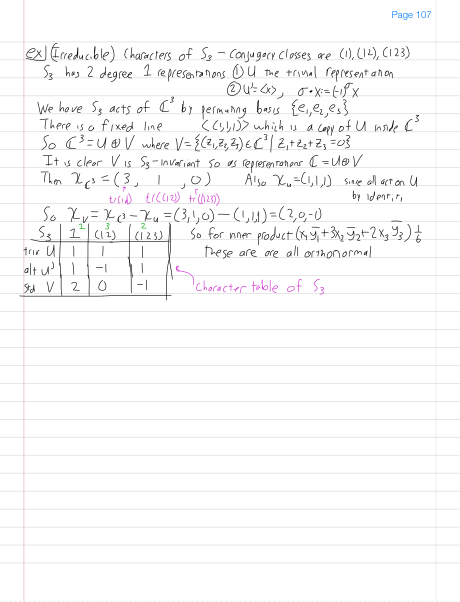 Page 107
ex) (Irreducible) Characters of S₃ - Conjugacy classes are (1), (12), (123)
S₃ has 2 degree 1 representations ① U the trivial representation
② U' = <x>, σ•x := (-1)^σ x
We have S₃ acts of ℂ³ by permuting basis {e₁,e₂,e₃}
There is a fixed line <(1,1,1)> which is a copy of U inside ℂ³
So ℂ³ = U⊕V where V = {(z₁,z₂,z₃) ∈ ℂ³ | z₁+z₂+z₃=0}
It is clear V is S₃-invariant so as representations ℂ = U⊕V
Then χ_ℂ³ = (3, 1, 0) Also χ_U = (1,1,1) since all act on U
tr(id) tr((12)) tr((123)) by identity
So χ_V = χ_ℂ³ - χ_U = (3,1,0) - (1,1,1) = (2,0,-1)
S₃ 1 (12) (123) So for inner product (x₁y̅₁+3x₂y̅₂+2x₃y̅₃) 1/6
triv U 1 1 1 these are are all orthonormal
alt U' 1 -1 1
std V 2 0 -1 Character table of S₃